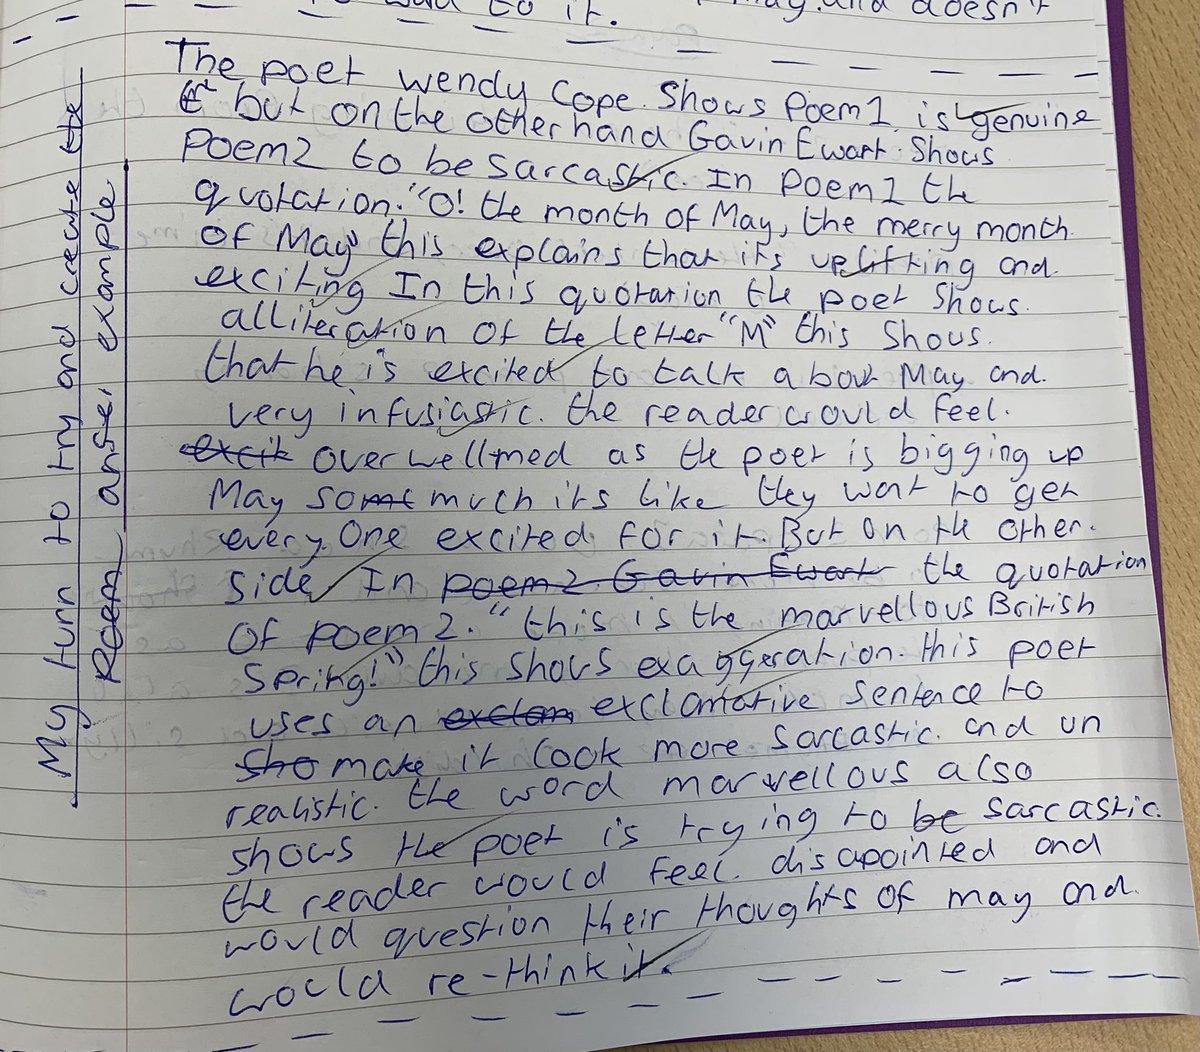 to it. May. and doesn't
My turn to try and create the
Poem answer example
The poet wendy Cope. Shows Poem 1 is genuine
but on the other hand Gavin Ewart. Shows
Poem 2 to be sarcastic. In poem 1 the
quotation. "O! the month of May, the merry month
of May" this explains that its uplifting and
exciting In this quotation the poet Shows.
alliteration of the letter "M" this Shows.
that he is excited to talk about May and.
very infusiastic. the reader would feel.
excit overwellmed as the poet is bigging up
May some much its like they want to get
every one excited for it. But on the other.
side. In poem 2 Gavin Ewart the quotation
of poem 2. "this is the marvellous British
Spring!" this shows exaggeration. this poet
uses an exclam exclamative sentence to
sho make it look more sarcastic. and un
realistic. the word marvellous also
shows the poet is trying to be sarcastic.
the reader would feel. disapointed and
would question their thoughts of may and.
would re-think it.